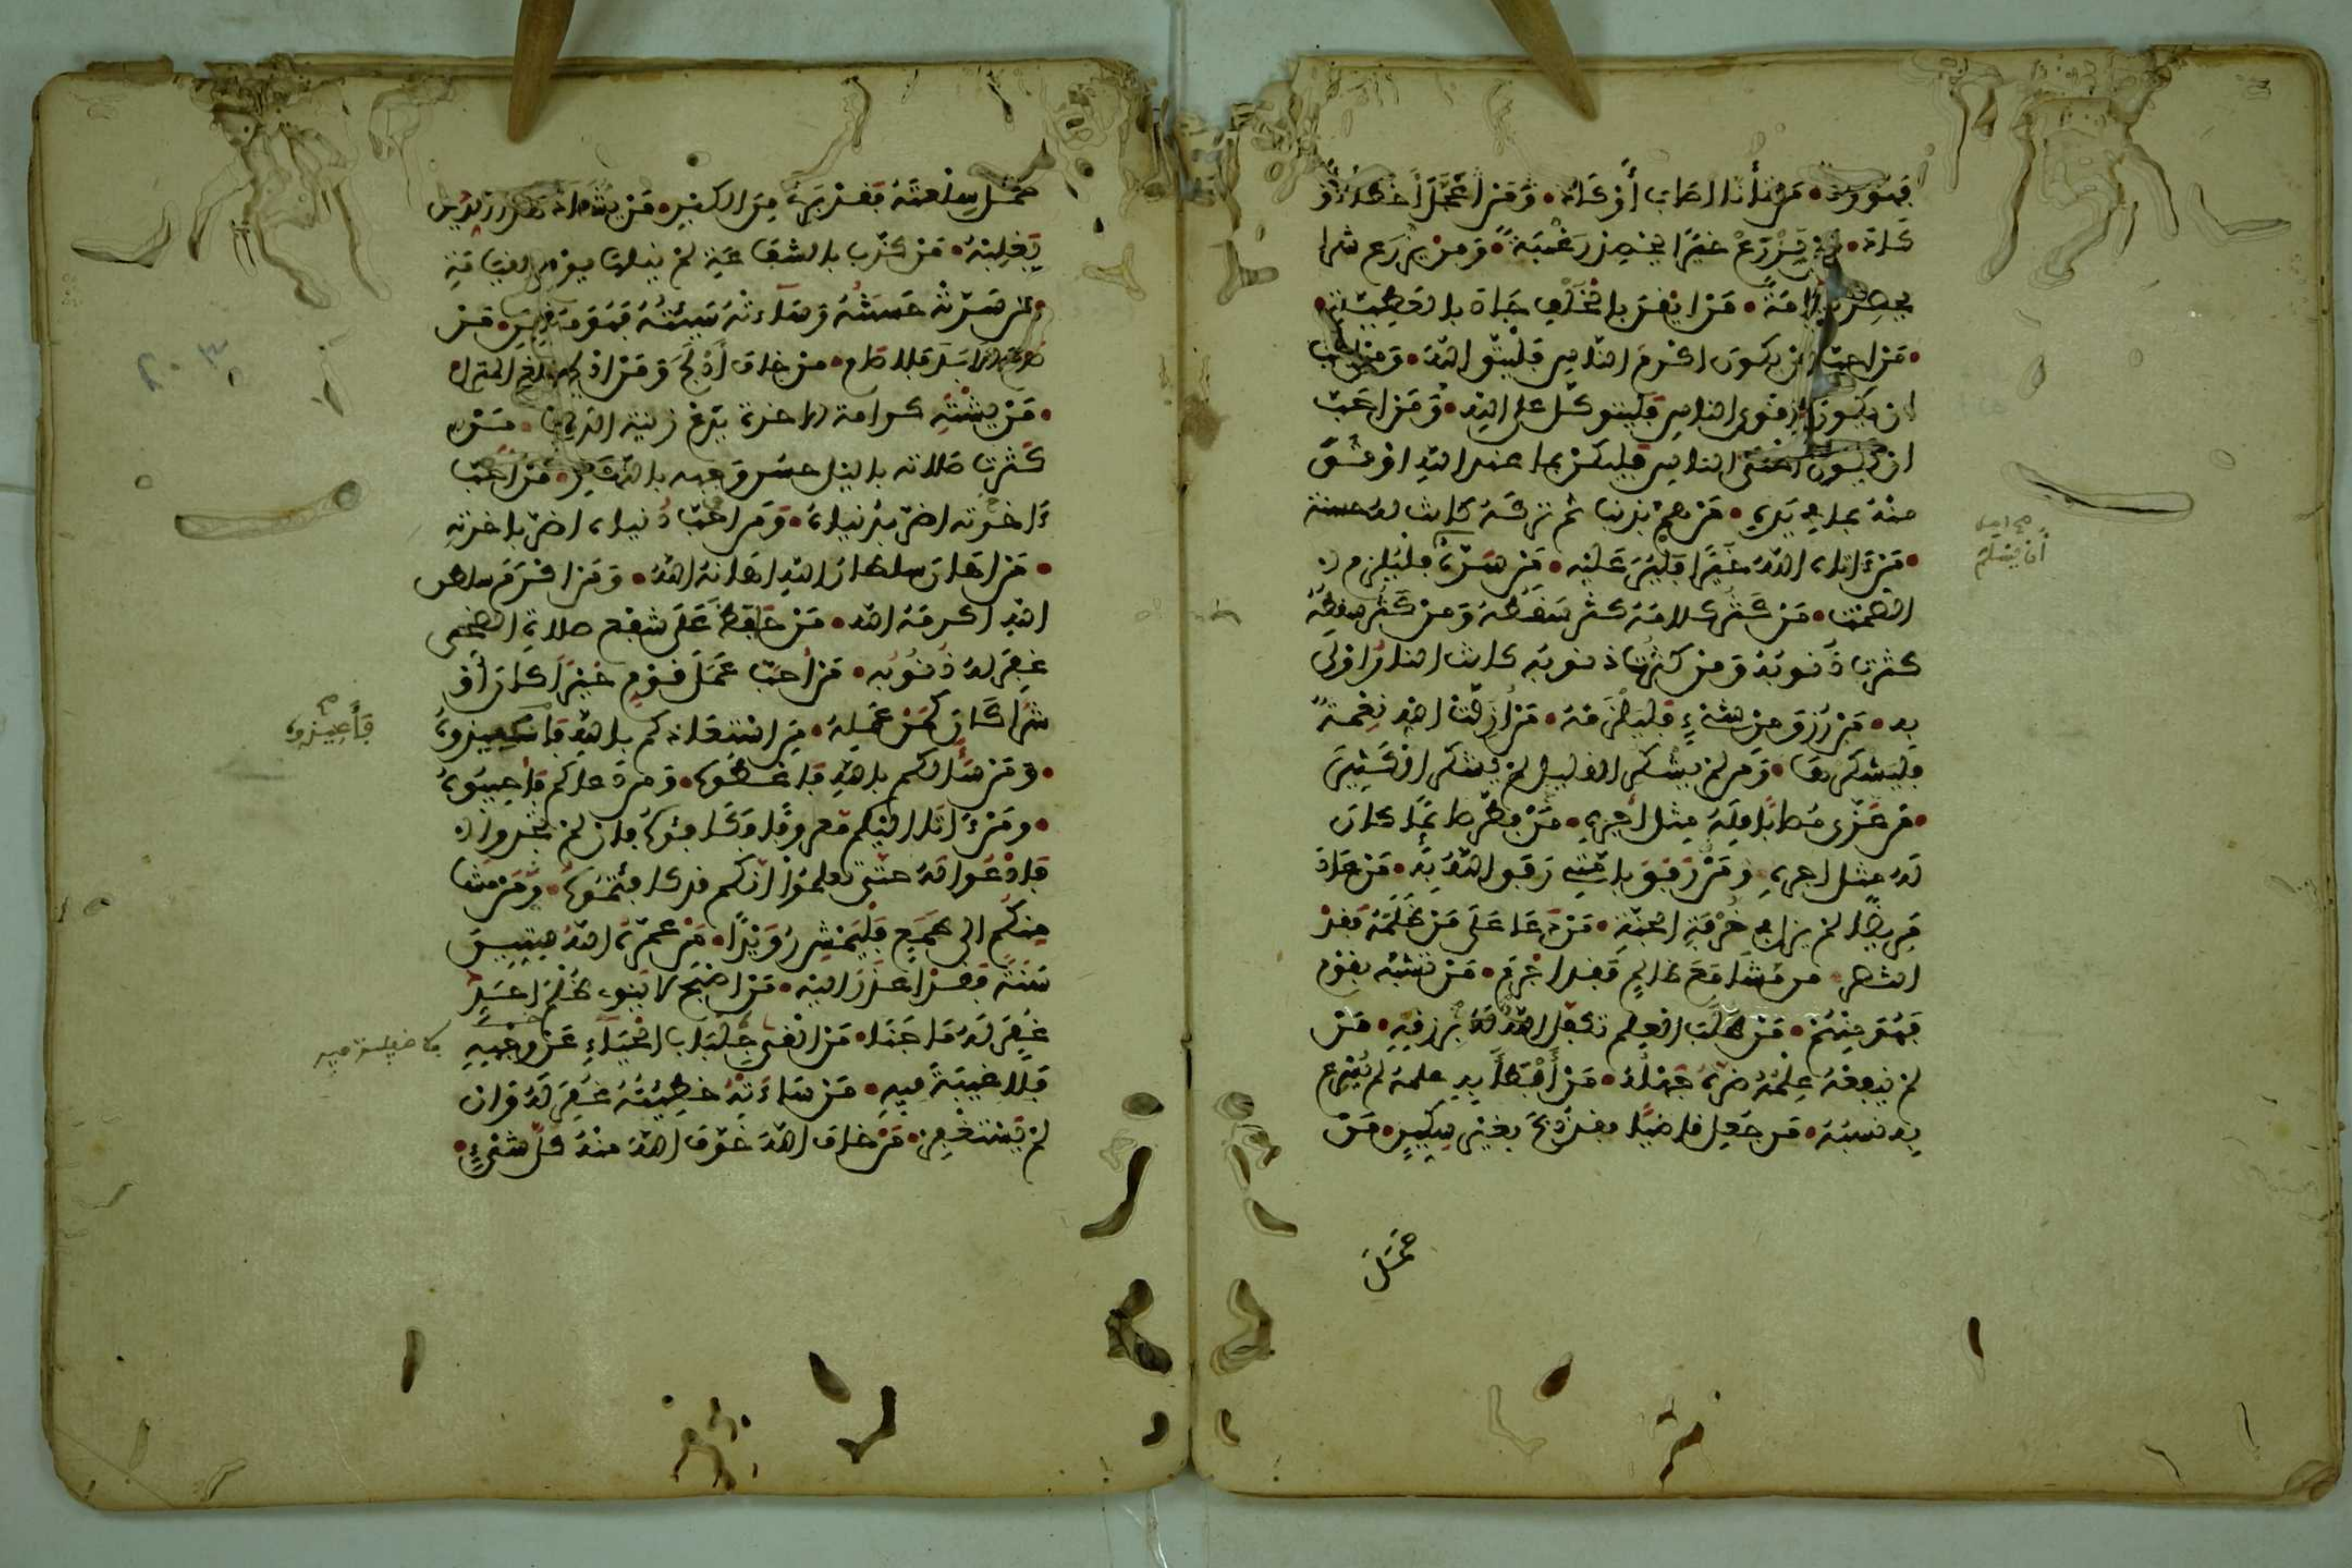 فهو رد • من تأنا اصاب أو كاد • ومن اعجل أخطا أو
كاد • من يزرع خيرا يحصد رغبة • ومن يزرع شرا
يحصد ندامة • من ايقن بالخلف جاد بالعطية
• من احب ان يكون اكرم الناس فليتق الله • ومن احب
ان يكون اقوى الناس فليتوكل على الله • ومن احب
ان يكون اغنى الناس فليكن بما عند الله اوثق
منه بما في يديه • من هم بذنب ثم تركه كانت له حسنة
• من ءاتاه الله خيرا فلير عليه • من سره أن يسلم فليلزم
الصمت • من كثر كلامه كثر سقطه ومن كثر سقطه
كثرت ذنوبه ومن كثرت ذنوبه كانت النار اولى
به • من رزق من شيء فليلزمه • من أزلت اليه نعمة
فليشكرها • ومن لم يشكر القليل لم يشكر الكثير
• من عزى مصابا فله مثل أجره • من فطر صائما كان
له مثل اجره • ومن رفق بامتي رفق الله به • من عاد
مريضا لم يزل في خرفة الجنة • من دعا على من ظلمه فقد
انتصر • من مشا مع ظالم فقد اجرم • من تشبه بقوم
فهو منهم • من طلب العلم تكفل الله له برزقه • من
لم ينفعه علمه ضره جهله • من أبطأ به عمله لم يسرع
به نسبه • من جعل قاضيا فقد ذبح بغير سكين • من
حمل
صح اصل
أن يسلم
حمل سلعته فقد برئ من الكبر • من يشاد هذا الدين
يغلبه • من كذب بالشفاعة لم ينلها يوم القيامة
• من سرته حسنته وساءته سيئته فهو مؤمن • من
صام الابد فلا صام • من خاف أدلج ومن ادلج بلغ المنزل
• من يشته كرامة الاخرة يدع زينة الدنيا • من
كثرت صلاته باليل حسن وجهه بالنهار • من احب
ءاخرته اضر بدنياه • ومن احب دنياه اضر بآخرته
• من اهان سلطان الله اهانه الله • ومن اكرم سلطان
الله اكرمه الله • من حافظ على شفع صلاة الضحى
غفر له ذنوبه • من أحب عمل قوم خيرا كان أو
شرا كان كمن عمله • من استعاذكم بالله فأعيذوه
• ومن سألكم بالله فاعطوه • ومن دعاكم فأجيبوه
• ومن ءاتا اليكم معروفا فكافئوه فان لم تجدوا
فادعوا له حتى تعلموا انكم قد كافئتموه • ومن مشا
منكم الى طمع فليمش رويدا • من عمره الله ستين
سنة فقد اعذر اليه • من اصبح لا ينوي ظلم احد
غفر له ما جنا • من القى جلباب الحياء عن وجهه
فلا غيبة فيه • من ساءته خطيئته غفر له وان
لم يستغفر • من خاف الله خوف الله منه كل شيء •
صح
فأعيذوه